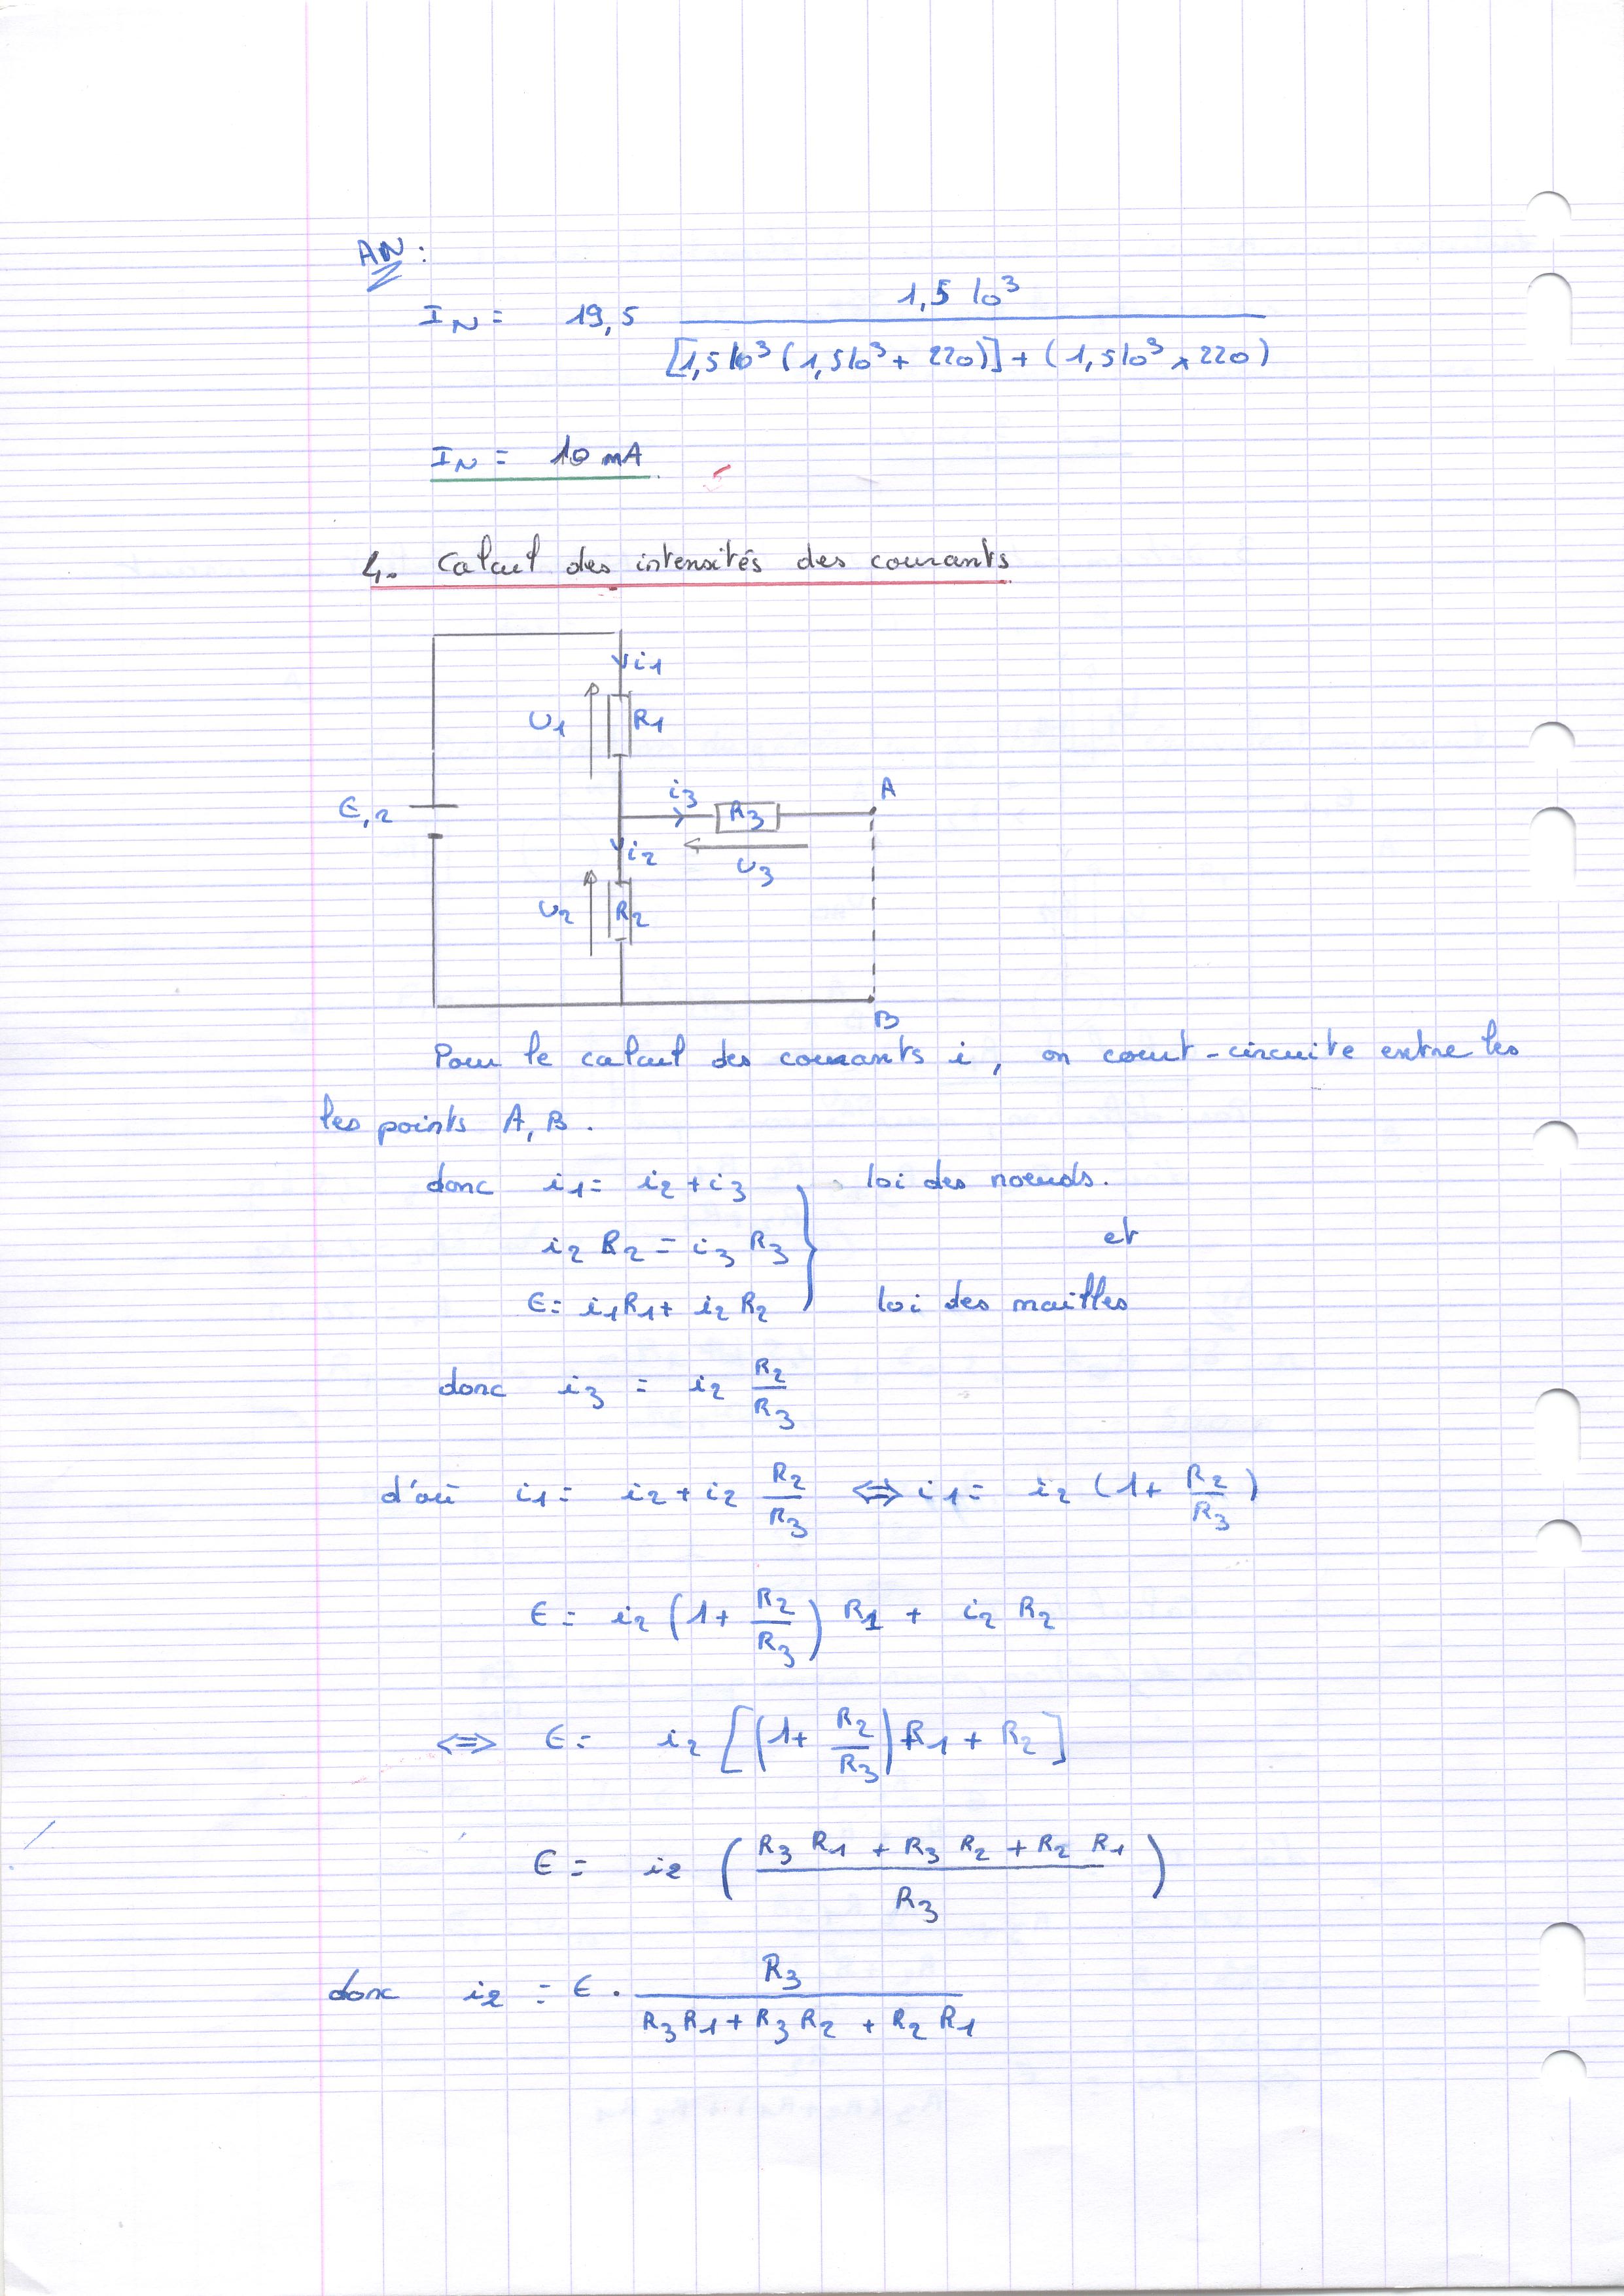 AN :
I_N = 19,5 \frac{1,5 10^3}{[1,5 10^3 (1,5 10^3 + 220)] + (1,5 10^3 × 220)}
I_N = 10 mA.
4. Calcul des intensités des courants
i1
U1 R1
E,r
i3 R3 A
i2 U3
U2 R2
B
Pour le calcul des courants i, on court-circuite entre les
les points A, B.
donc i1 = i2 + i3 loi des noeuds.
i2 R2 = i3 R3 et
E = i1 R1 + i2 R2 loi des mailles
donc i3 = i2 \frac{R2}{R3}
d'où i1 = i2 + i2 \frac{R2}{R3} ⇔ i1 = i2 (1 + \frac{R2}{R3})
E = i2 (1 + \frac{R2}{R3}) R1 + i2 R2
⇔ E = i2 [(1 + \frac{R2}{R3}) R1 + R2]
E = i2 (\frac{R3 R1 + R3 R2 + R2 R1}{R3})
donc i2 = E . \frac{R3}{R3 R1 + R3 R2 + R2 R1}